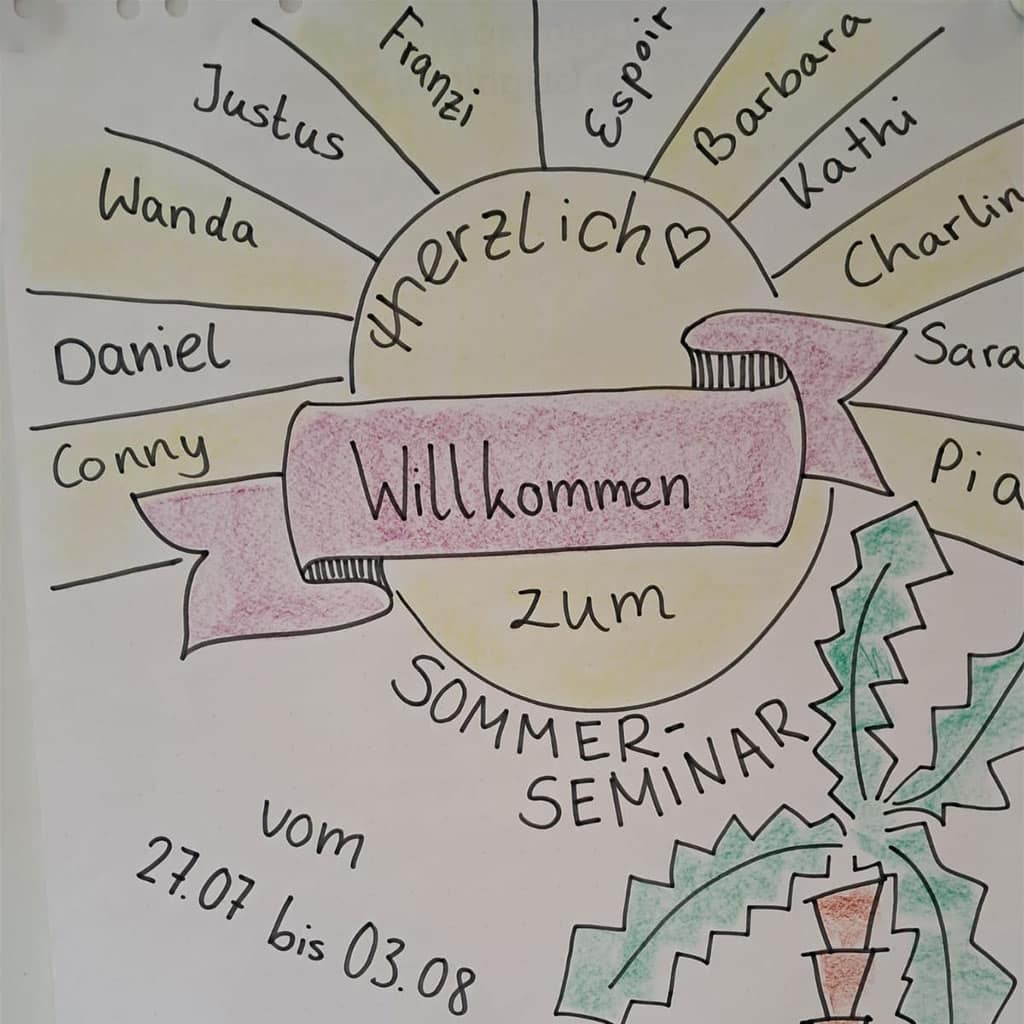 Conny
Daniel
Wanda
Justus
Franzi
Espoir
Barbara
Kathi
Charlin
Sara
Pia
Herzlich
Willkommen
zum
SOMMER-
SEMINAR
vom
27.07 bis 03.08